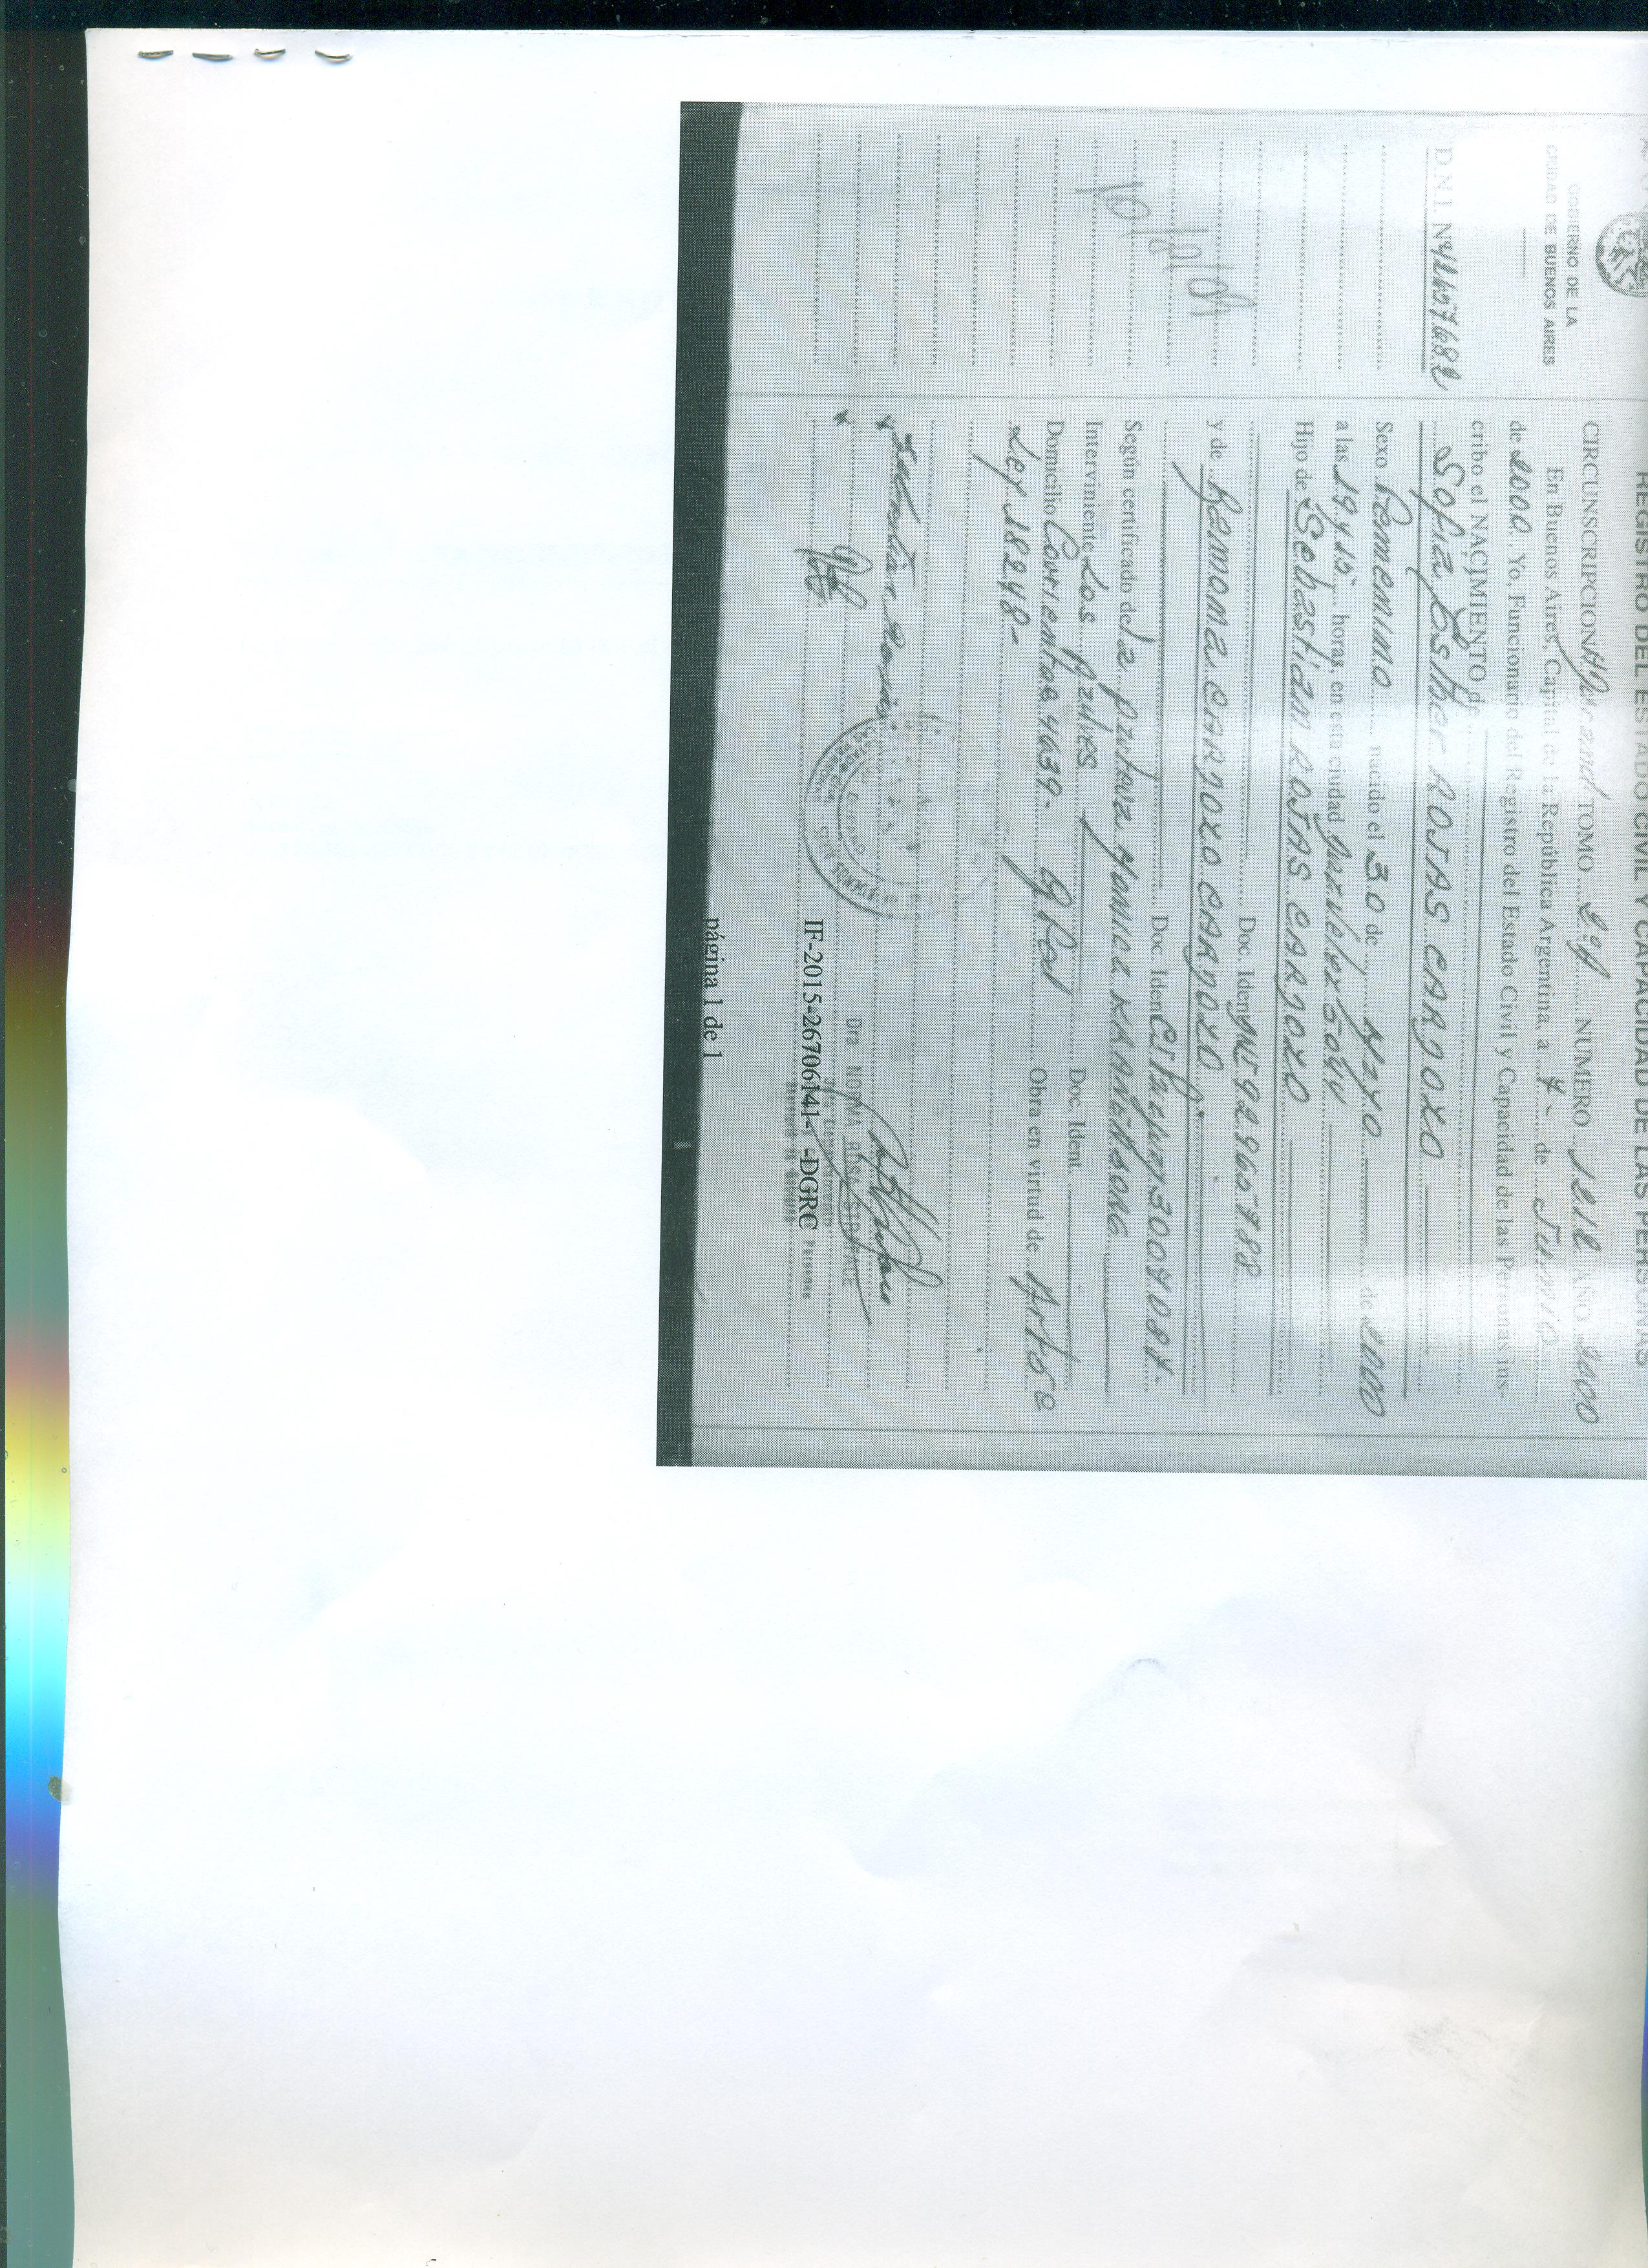 REGISTRO DEL ESTADO CIVIL Y CAPACIDAD DE LAS PERSONAS
GOBIERNO DE LA
CIUDAD DE BUENOS AIRES
D.N.I. Nº 42657682
CIRCUNSCRIPCION TOMO 2º A NUMERO 1212 AÑO 2000
En Buenos Aires, Capital de la República Argentina, a 7- de Junio
de 2000. Yo, Funcionario del Registro del Estado Civil y Capacidad de las Personas ins-
cribo el NACIMIENTO de
Sofia Esther ROJAS CARDOZO
Sexo Femenino nacido el 30 de Mayo de 2000
a las 19.45 horas, en esta ciudad 5044
Hijo de Sebastián ROJAS CARDOZO
Doc. Iden DNI 92.866.788
y de Ramona CARDOZO CARDOZO
Doc. Iden CI 3.004.087-
Según certificado de la partera Monica
Interviniente Los Azules Doc. Ident.
Domicilio Corrientes 4639- Obra en virtud de Art 5º
Ley 18248-
Dra. NORMA ROSA
IF-2015-26706141- -DGRC
página 1 de 1